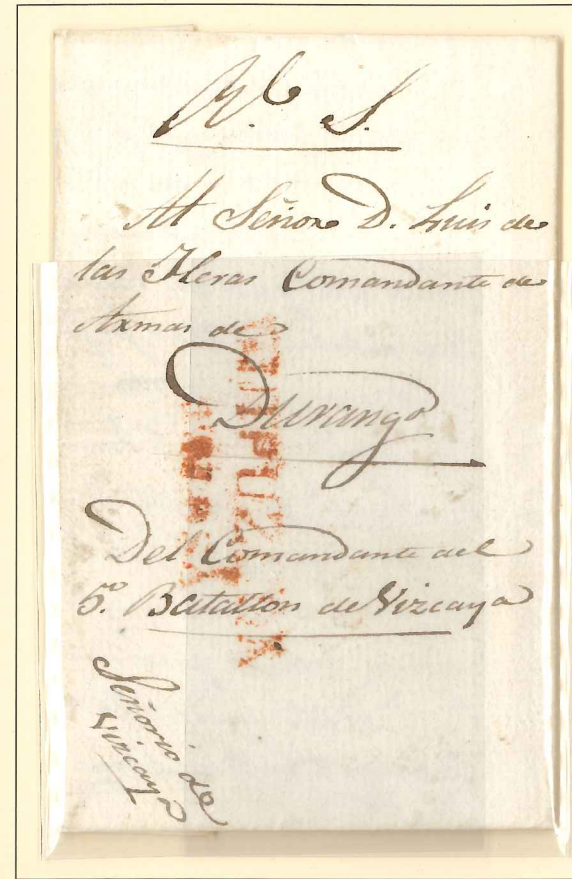 Rl. S.
Al Señor D. Luis de
las Heras Comandante de
Armas de
Durango
Del Comandante del
5º. Batallon de Vizcaya
Señorio de
Vizcaya
GUIPUZCOA